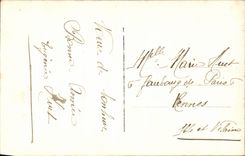 Vœux de bonheur
Bonne Année
Eugénie Huet
Melle Marie Huet
6 Faubourg de Paris 6
Rennes
Ille et Vilaine